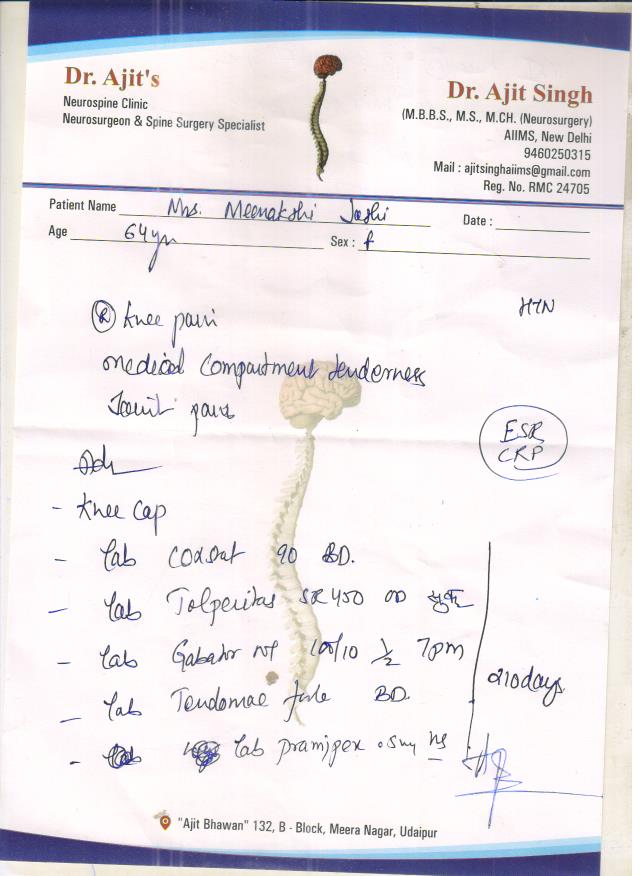 Dr. Ajit's
Neurospine Clinic
Neurosurgeon & Spine Surgery Specialist
Dr. Ajit Singh
(M.B.B.S., M.S., M.CH. (Neurosurgery)
AIIMS, New Delhi
9460250315
Mail : ajitsinghaiims@gmail.com
Reg. No. RMC 24705
Patient Name Mrs. Meenakshi Joshi Date :
Age 64 yr Sex : f
HTN
(R) Knee pain
medical compartment tenderness
Joint pain
ESR
CRP
Adv
- Knee cap
- Tab 90 BD.
- Tab SR 450 OD सुबह
- Tab Gabator NT 100/10 1/2 7pm
- Tab BD.
- Tab pramipex 0.5mg hs
x10days
"Ajit Bhawan" 132, B - Block, Meera Nagar, Udaipur